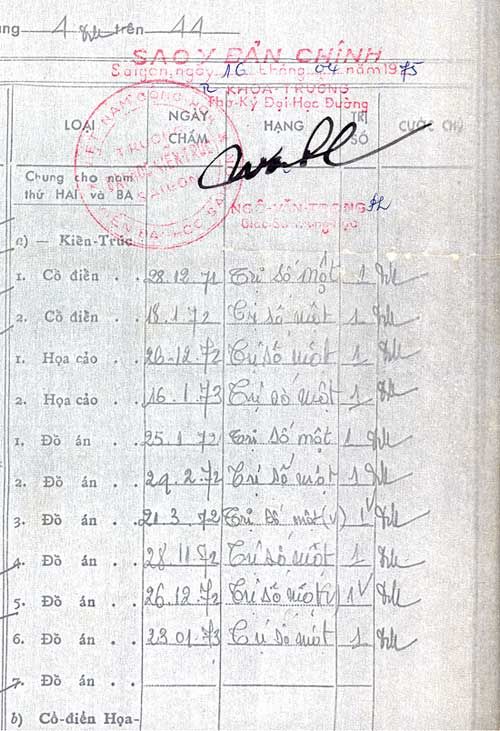 ng 4 trên 44
SAO Y BẢN CHÍNH
Saigon, ngày 16 tháng 04 năm 1975
KHOA-TRƯỞNG
Thơ-Ký Đại-Học Đường
LOẠI NGÀY CHẤM HẠNG TRỊ SỐ CƯỚC CHÚ
Chung cho năm thứ HAI và BA
NGÔ-VĂN-TRỌNG
a) — Kiến-Trúc
1. Cổ điển . . 28.12.71 Trị số một 1
2. Cổ điển . . 18.1.72 Trị số một 1
1. Họa cảo . . 26-12.72 Trị số một 1
2. Họa cảo . . 16.1.73 Trị số một 1
1. Đồ án . . 25.1.72 Trị số một 1
2. Đồ án . . 29.2.72 Trị số một 1
3. Đồ án . . 21.3.72 Trị số một (v) 1
4. Đồ án . . 28.11.72 Trị số một 1
5. Đồ án . . 26.12.72 Trị số một (v) 1
6. Đồ án . . 23.01.73 Trị số một 1
7. Đồ án . .
b) Cổ-điển Họa-